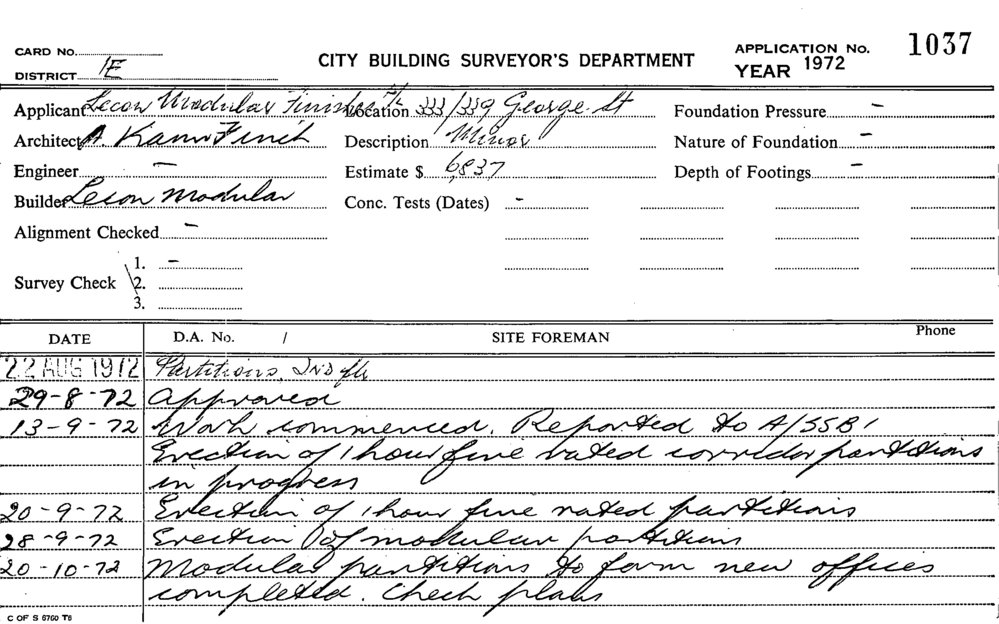 CARD No. CITY BUILDING SURVEYOR'S DEPARTMENT APPLICATION No. 1037
DISTRICT 1E YEAR 1972
Applicant Lecon Modular Finishes P/L Location 333/339 George St Foundation Pressure –
Architect A. Kann Finch Description Minor Nature of Foundation –
Engineer – Estimate $ 6,837 Depth of Footings –
Builder Lecon Modular Conc. Tests (Dates) –
Alignment Checked –
Survey Check 1. –
2.
3.
DATE D.A. No. / SITE FOREMAN Phone
22 AUG 1972 Partitions,
29-8-72 Approved
13-9-72 Work commenced. Reported to A/SSBI
Erection of 1 hour fire rated corridor partitions
in progress
20-9-72 Erection of 1 hour fire rated partitions
28-9-72 Erection of modular partitions
20-10-72 Modular partitions to form new offices
completed. Check plans
C OF S 6760 T6